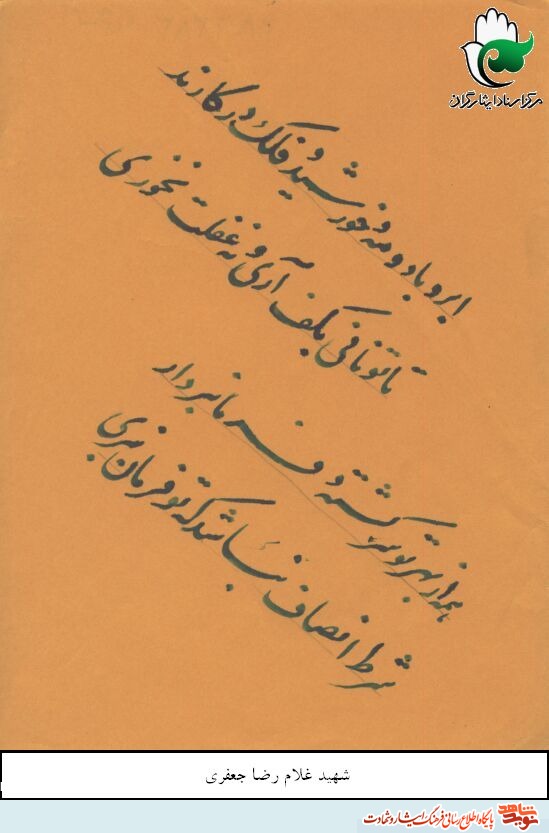 مرکز اسناد ایثارگران
ابر و باد و مه و خورشید و فلک در کارند
تا تو نانی بکف آری و به غفلت نخوری
همه از بهر تو سرگشته و فرمانبردار
شرط انصاف نباشد که تو فرمان نبری
شهید غلام رضا جعفری
نوید شاهد
پایگاه اطلاع رسانی فرهنگ ایثار و شهادت